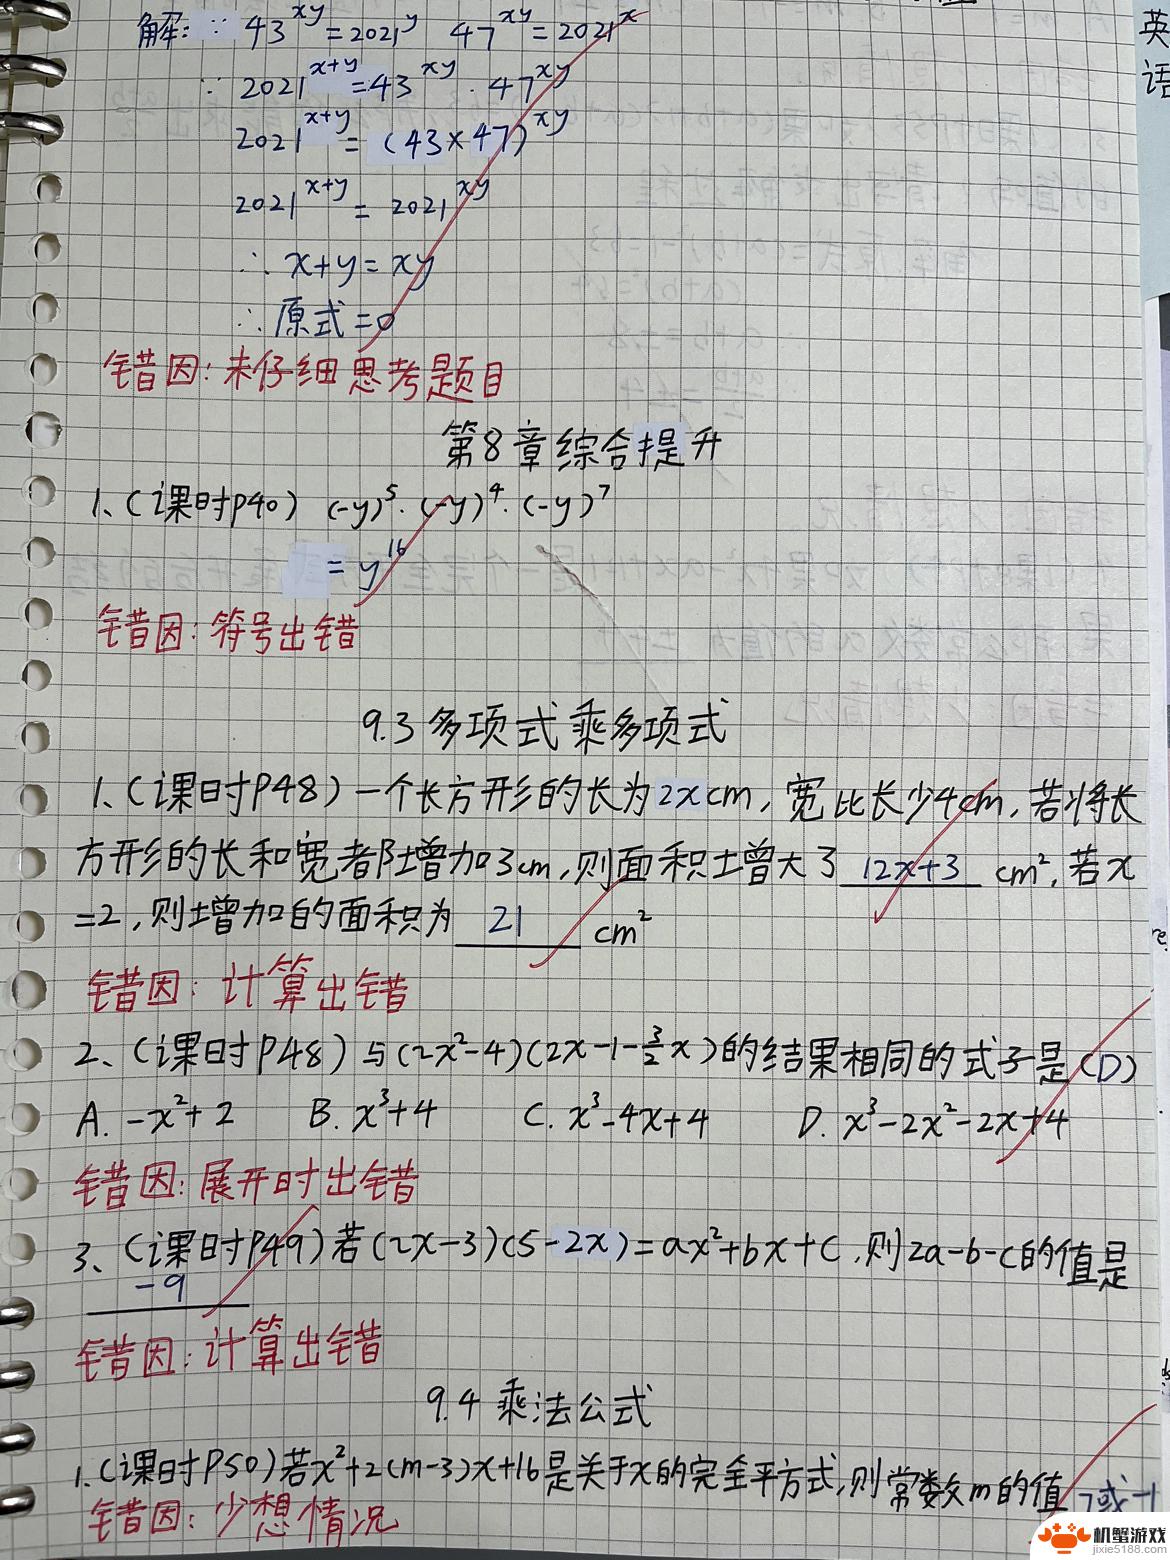 解:∵ 43^xy = 2021^y 47^xy = 2021^x
∵ 2021^x+y = 43^xy · 47^xy
2021^x+y = (43×47)^xy
2021^x+y = 2021^xy
∴ x+y = xy
∴ 原式 = 0
错因: 未仔细思考题目
第8章综合提升
1、(课时P40) (-y)^5 · (-y)^4 · (-y)^7
= y^16
错因: 符号出错
9.3 多项式乘多项式
1、(课时P48) 一个长方形的长为2xcm, 宽比长少4cm, 若将长
方形的长和宽都增加3cm, 则面积增大了 12x+3 cm², 若x
=2, 则增加的面积为 21 cm²
错因: 计算出错
2、(课时P48) 与(2x²-4)(2x-1-3/2x)的结果相同的式子是(D)
A. -x²+2 B. x³+4 C. x³-4x+4 D. x³-2x²-2x+4
错因: 展开时出错
3、(课时P49) 若(2x-3)(5-2x)=ax²+bx+c, 则2a-b-c的值是
-9
错因: 计算出错
9.4 乘法公式
1.(课时P50) 若x²+2(m-3)x+16是关于x的完全平方式, 则常数m的值 7或-1
错因: 少想情况
英
语
机蟹游戏
jixie5188.com